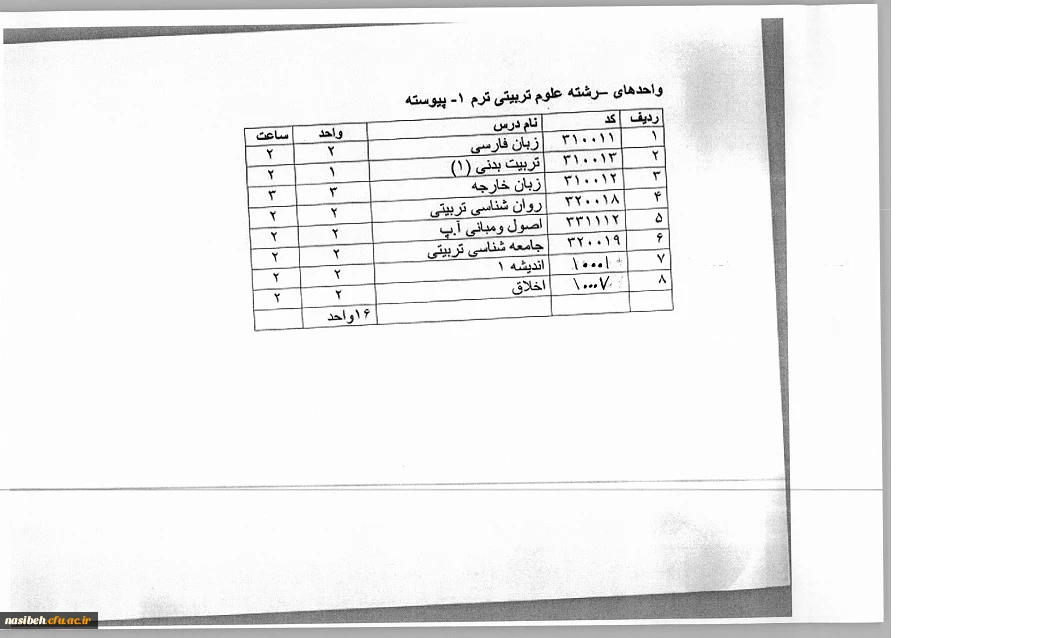 واحدهای –رشته علوم تربیتی ترم ۱- پیوسته
ردیف کد نام درس واحد ساعت
۱ ۳۱۰۰۱۱ زبان فارسی ۲ ۲
۲ ۳۱۰۰۱۳ تربیت بدنی (۱) ۱ ۲
۳ ۳۱۰۰۱۲ زبان خارجه ۳ ۳
۴ ۳۲۰۰۱۸ روان شناسی تربیتی ۲ ۲
۵ ۳۳۱۱۱۲ اصول ومبانی آ.پ ۲ ۲
۶ ۳۲۰۰۱۹ جامعه شناسی تربیتی ۲ ۲
۷ ۱۰۰۰۱ اندیشه ۱ ۲ ۲
۸ ۱۰۰۰۷ اخلاق ۲ ۲
۱۶واحد
nasibeh.cfu.ac.ir